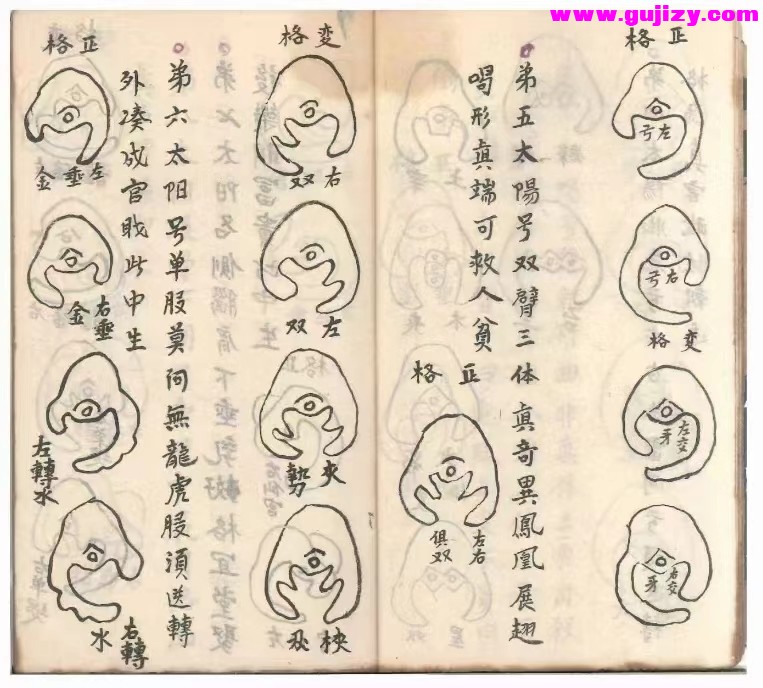 www.gujizy.com
正格
左弓
右弓
变格
左交牙
右交牙
第五太陽号双臂三体真奇異鳳凰展翅
喝形真端可救人贫
正格
左右俱双
变格
右双
左双
夾勢
飛
第六太阳号单股莫问無龍虎股須送轉
外凑成官戝此中生
正格
左垂金
右垂金
左轉水
右轉水